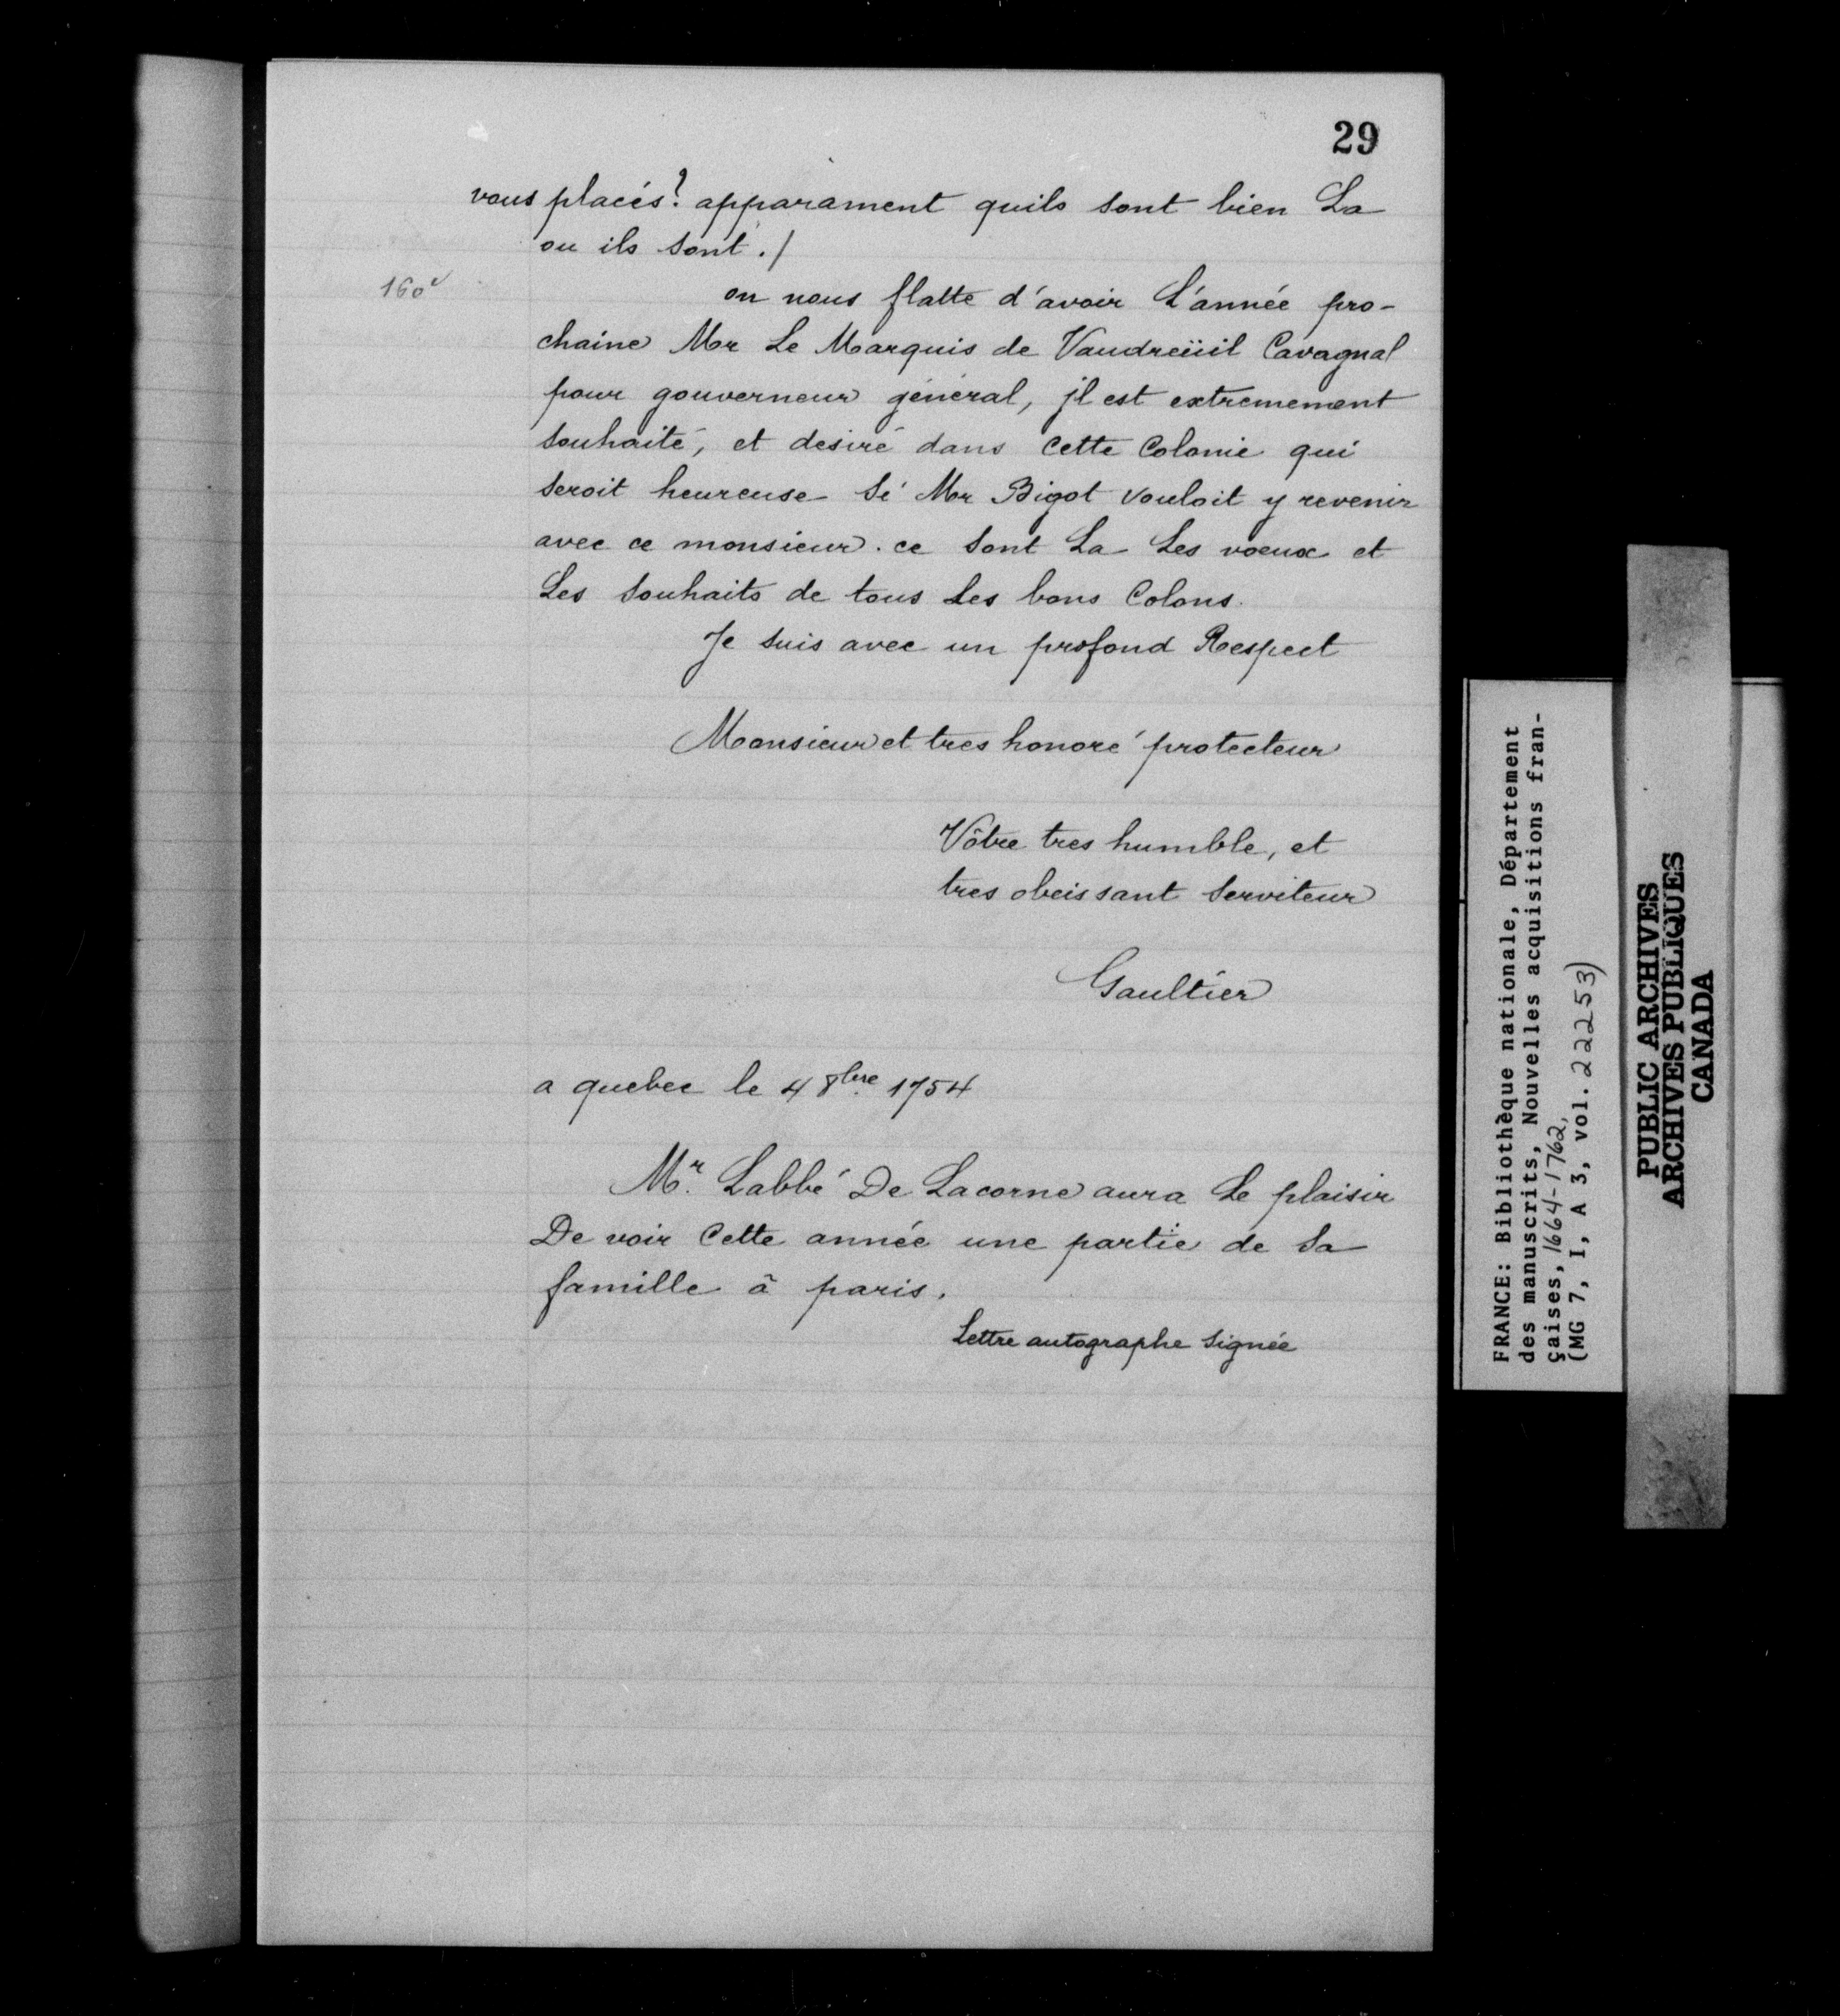 29
vous placés? apparament quils sont bien La
ou ils sont./
160v
on nous flatte d'avoir L'année pro-
chaine Mr Le Marquis de Vaudreüil Cavagnal
pour gouverneur général, jl est extremement
souhaité, et desiré dans Cette Colonie qui
seroit heureuse si Mr Bigot vouloit y revenir
avec ce monsieur. ce sont La Les voeux et
Les souhaits de tous Les bons Colons.
Je suis avec un profond Respect
Monsieur et tres honoré protecteur
Vôtre tres humble, et
tres obeissant serviteur
Gaultier
a quebec le 4 8bre 1754
Mr. Labbé De Lacorne aura Le plaisir
De voir Cette année une partie de sa
famille à paris.
Lettre autographe signée
FRANCE: Bibliothèque nationale, Département
des manuscrits, Nouvelles acquisitions fran-
çaises, 1664-1762,
(MG 7, I, A 3, vol. 22253)
PUBLIC ARCHIVES
ARCHIVES PUBLIQUES
CANADA